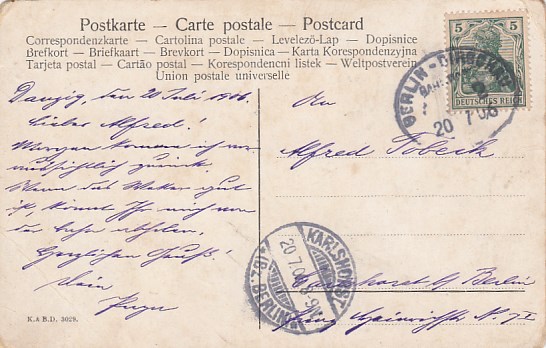 Postkarte – Carte postale – Postcard
Correspondenzkarte – Cartolina postale – Levelező-Lap – Dopisnice
Brefkort – Briefkaart – Brevkort – Dopisnica – Karta Korespondenzyjna
Tarjeta postal – Cartão postal – Korespondencni listek – Weltpostverein
Union postale universelle
5 5
DEUTSCHES REICH
BERLIN
20 7 06
Danzig, den 20 Juli 1906.
Lieber Alfred!
Morgen komme ich
zurück.
Wenn das gut
ist, könnt Ihr mich von
der Bahn abholen.
Herzlichen Gruß!
Dein
An
Alfred Tobeck
KARLSHORST
(BERLIN)
20.7.06
Karlshorst b/ Berlin
Prinz Heinrichstr. N.
K.A.B.D. 3029.